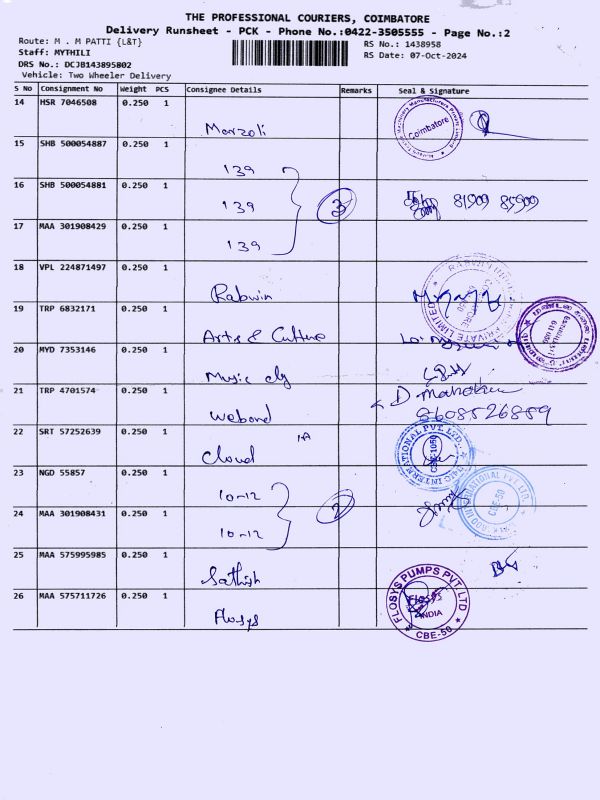 THE PROFESSIONAL COURIERS, COIMBATORE
Delivery Runsheet - PCK - Phone No.:0422-3505555 - Page No.:2
Route: M . M PATTI {L&T}
Staff: MYTHILI
DRS No.: DCJB143895802
Vehicle: Two Wheeler Delivery
RS No.: 1438958
RS Date: 07-Oct-2024
S No Consignment No Weight PCS Consignee Details Remarks Seal & Signature
14 HSR 7046508 0.250 1
Marzoli
Coimbatore
15 SHB 500054887 0.250 1
139
16 SHB 500054881 0.250 1
139 3 81909 85909
17 MAA 301908429 0.250 1
139
18 VPL 224871497 0.250 1
Rabwin
PRIVATE LIMITED
19 TRP 6832171 0.250 1
Arts & Culture
20 MYD 7353146 0.250 1
Music clg
21 TRP 4701574 0.250 1
Webond
D
9608526859
22 SRT 57252639 0.250 1
Cloud 1A
INTERNATIONAL PVT. LTD.
CBE-1050
23 NGD 55857 0.250 1
10-12 2
INTERNATIONAL PVT LTD
CBE-50
24 MAA 301908431 0.250 1
10-12
25 MAA 575995985 0.250 1
Sathish
26 MAA 575711726 0.250 1
Flosys
FLOSYS PUMPS PVT LTD
Flosys
INDIA
CBE-50